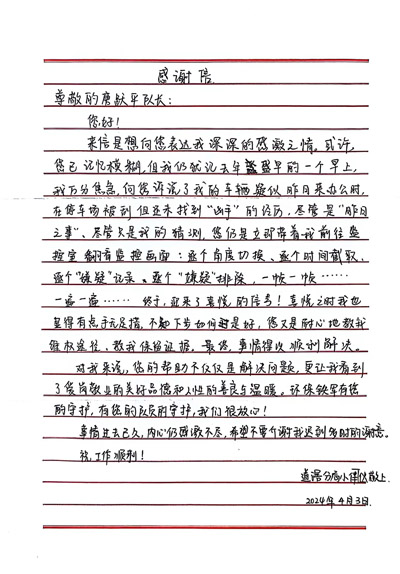 感谢信
尊敬的唐跃平队长：
您好！
来信是想向您表达我深深的感激之情。或许，
您已记忆模糊，但我仍然记去年盛早的一个早上，
我万分焦急，向您诉说了我的车辆疑似昨日来办公时，
在停车场被刮但并未找到“凶手”的经历，尽管是“昨日
之事”、尽管只是我的猜测，您仍是立即带着我前往监
控室翻看监控画面：逐个角度切换、逐个时间截取、
逐个“嫌疑”记录、逐个“嫌疑”排除，一帧一帧……
一遍一遍……终于，迎来了喜悦的信号！喜悦之时我也
显得有点手足无措，不知下步如何是好，您又是耐心地教我
维权途径、教我保留证据。最终，事情得以顺利解决。
对我来说，您的帮助不仅仅是解决问题，更让我看到
了爱岗敬业的美好品德和人性的善良与温暖。环保铁军有您
的守护，有您们的守护，我们很放心！
事情过去已久，内心仍感激不尽，希望不要介意我迟到多时的谢意。
祝工作顺利！
分局小 敬上
2024年4月3日